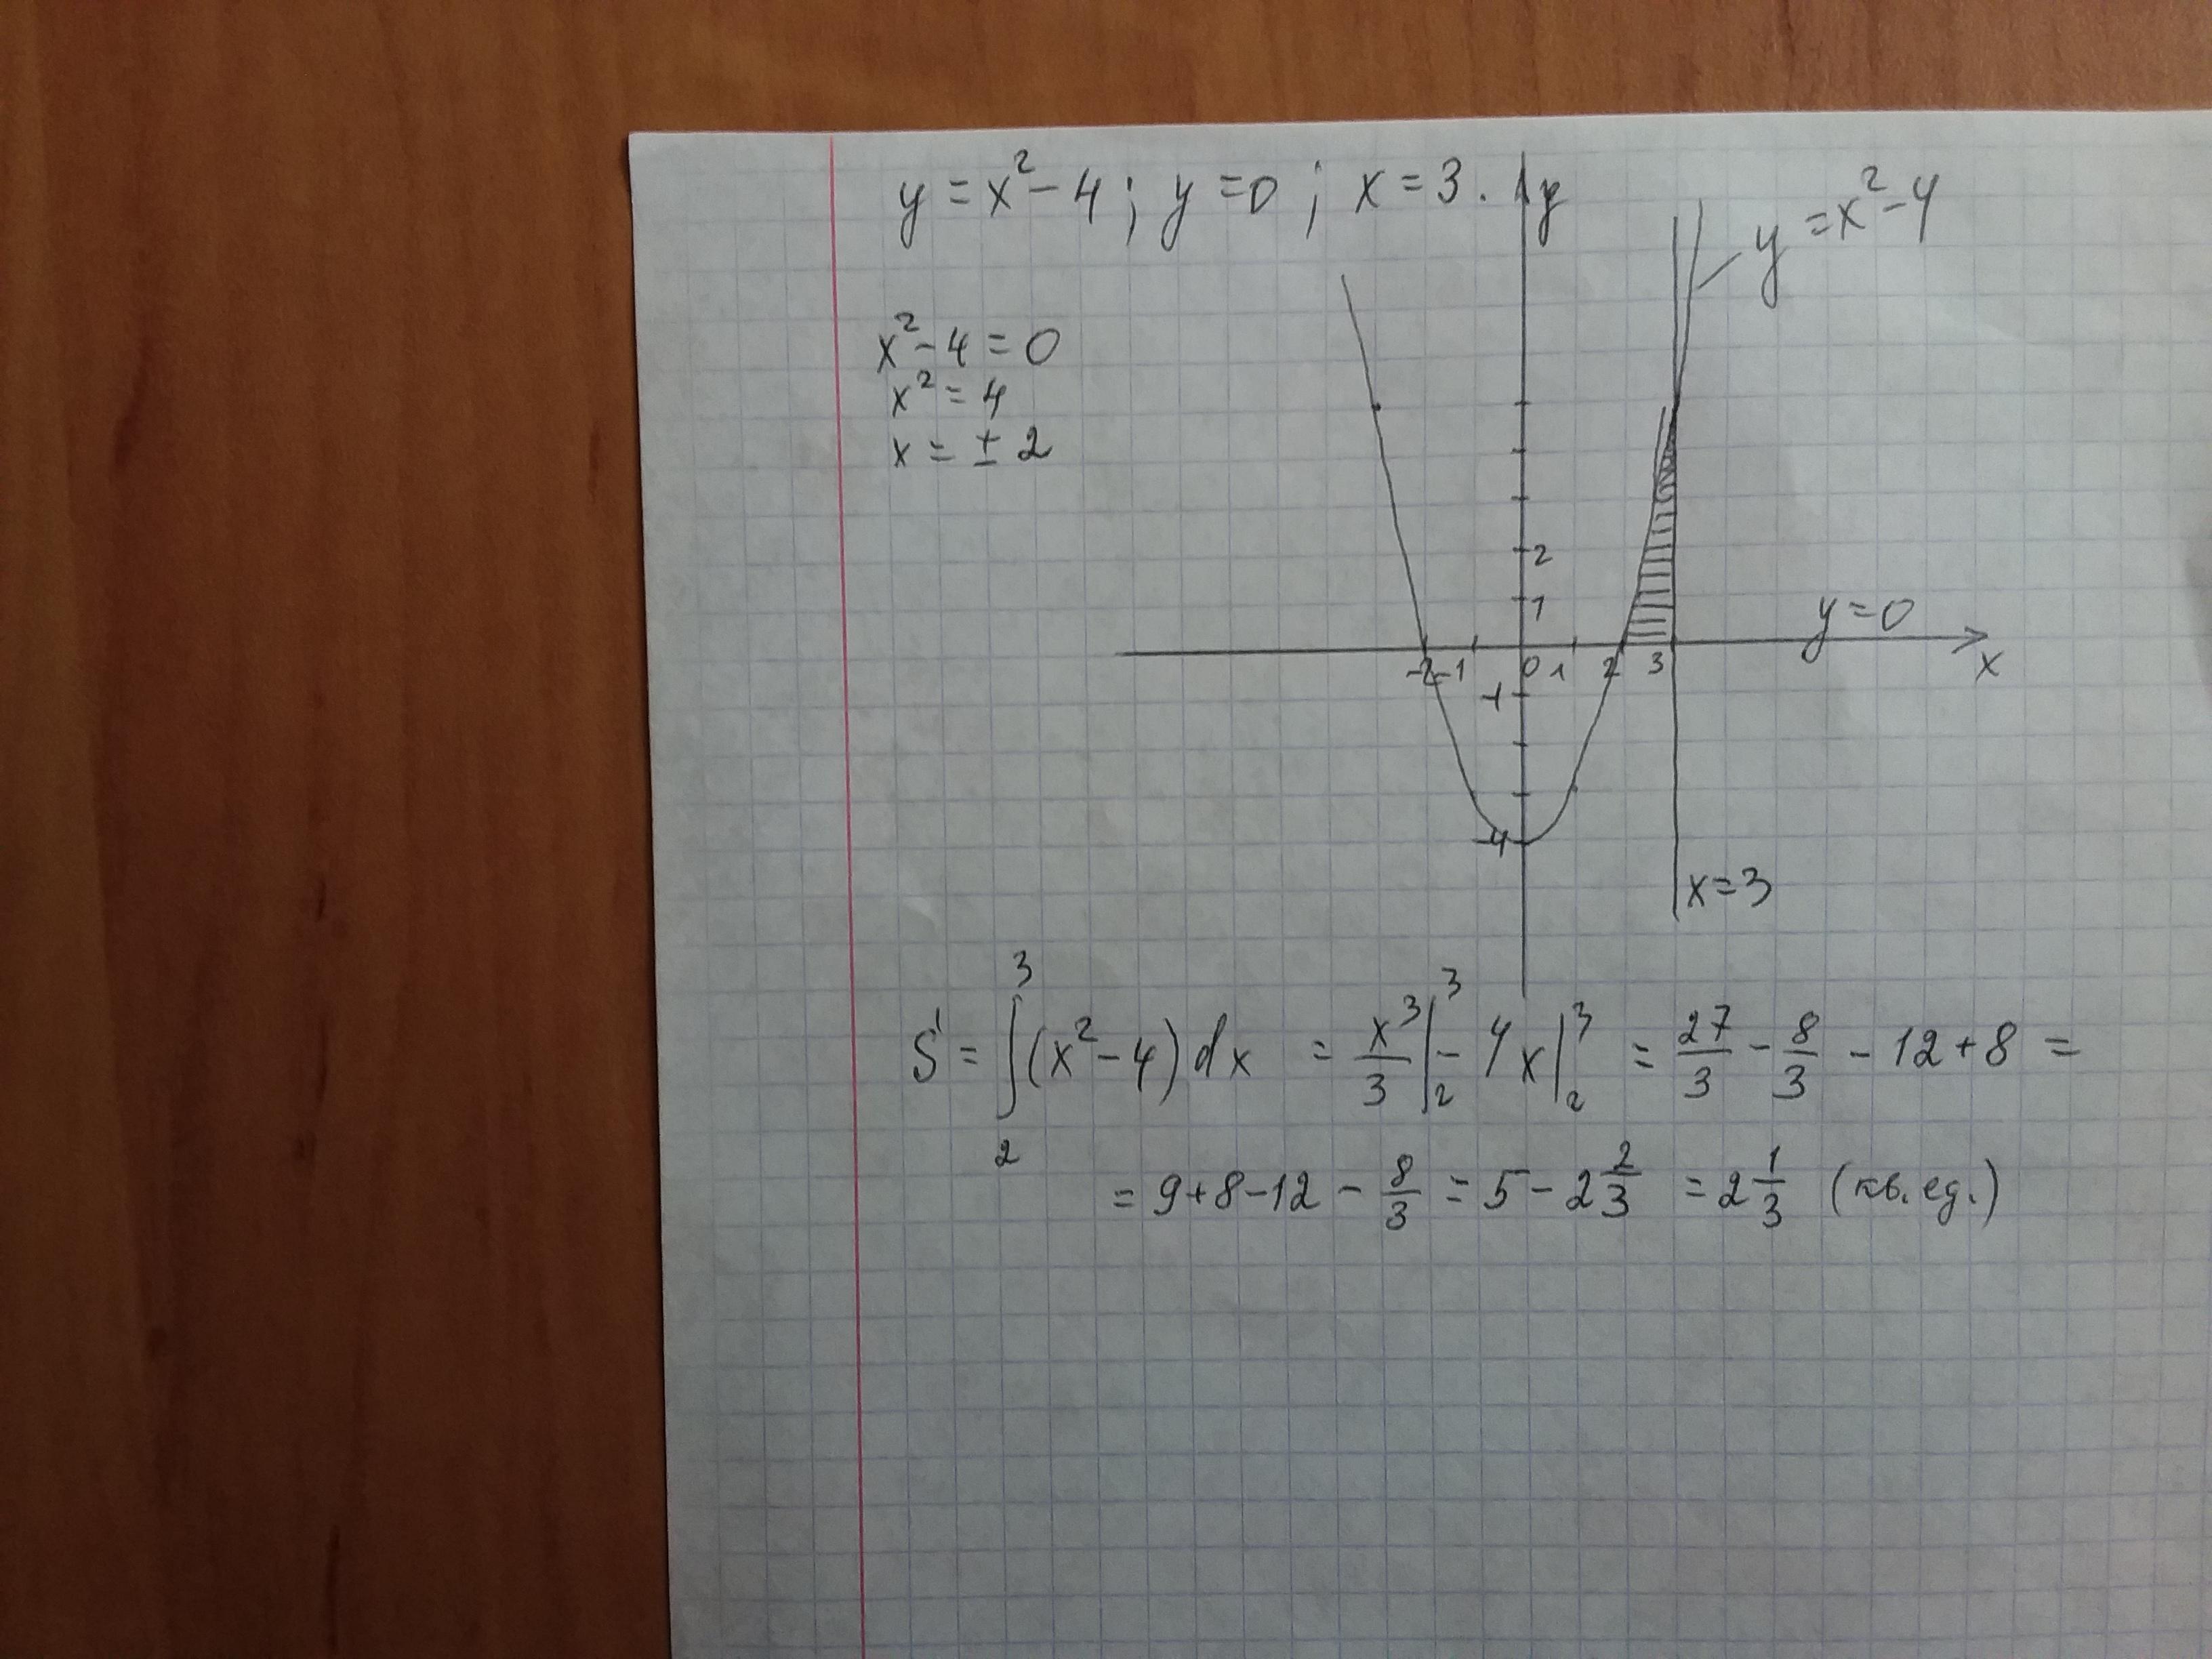 y = x² - 4 ; y = 0 ; x = 3.
x² - 4 = 0
x² = 4
x = ± 2
y
y = x² - 4
2
1
y = 0
-2 -1 0 1 2 3 x
-1
-4
x = 3
S = ∫₂³ (x² - 4) dx = x³/3 |₂³ - 4x |₂³ = 27/3 - 8/3 - 12 + 8 =
= 9 + 8 - 12 - 8/3 = 5 - 2 2/3 = 2 1/3 (кв. ед.)